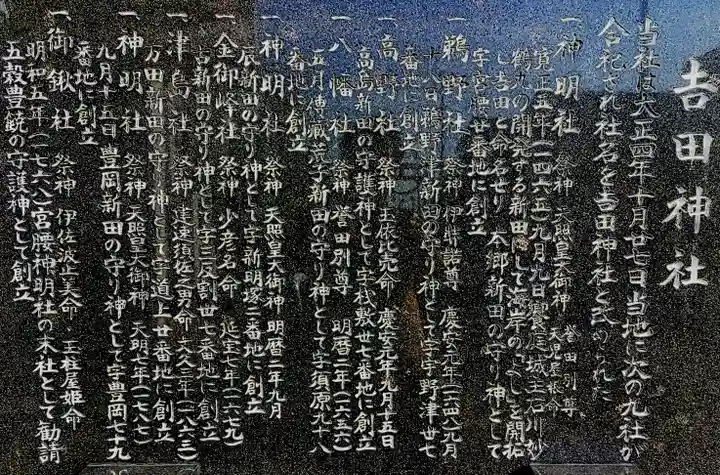 吉田神社
当社は大正四年十月廿七日当地に次の九社が
合祀され社名を吉田神社と改められた
一、神明社 祭神 天照皇大御神 誉田別尊、天児屋根命
寛正五年(一四六五)九月九日 城主石川妙
鶴丸の開発する新田にして海岸の「よし」を開拓
し吉田と命名せり 本郷新田の守り神として
字宮腰廿番地に創立
一、鵜野社 祭神 伊弉諾尊 慶安元年(一六四八)九月
十八日鵜野津新田の守り神として字宇野津廿七
番地に創立
一、高野社 祭神 玉依比売命 慶安元年九月十五日
高島新田の守護神として字桟敷廿七番地に創立
一、八幡社 祭神 誉田別尊 明暦二年(一六五六)
五月傳蔵荒子新田の守り神として字須原九十八
番地に創立
一、神明社 祭神 天照皇大御神 明暦二年九月
辰新田の守り神として字新明塚二番地に創立
一、金御峰社 祭神 少彦名命 延宝七年(一六七九)
古新田の守り神として字三反割廿七番地に創立
一、津島社 祭神 建速須佐之男命 文久三年(一八六三)
万田新田の守り神として字道上廿番地に創立
一、神明社 祭神 天照皇大御神 天明七年(一七八七)
九月十五日豊岡新田の守り神として字豊岡七十九
番地に創立
一、御鍬社 祭神 伊佐波止美命、玉柱屋姫命
明和五年(一七六八)宮腰神明社の末社として勧請
五穀豊饒の守護神として創立